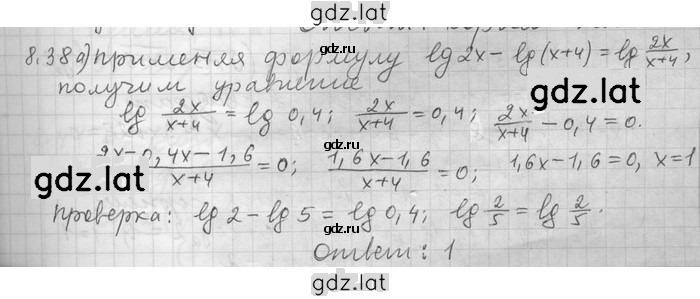 gdz.lat
8.38 a) применяя формулу lg 2x - lg (x+4) = lg 2x/(x+4),
получим уравнение gdz.lat
lg 2x/(x+4) = lg 0,4; 2x/(x+4) = 0,4; 2x/(x+4) - 0,4 = 0.
gdz.lat (2x-0,4x-1,6)/(x+4) = 0; (1,6x-1,6)/(x+4) = 0; 1,6x-1,6=0, x=1
gdz.lat
Проверка: lg 2 - lg 5 = lg 0,4; lg 2/5 = lg 2/5.
Ответ: 1
gdz.lat